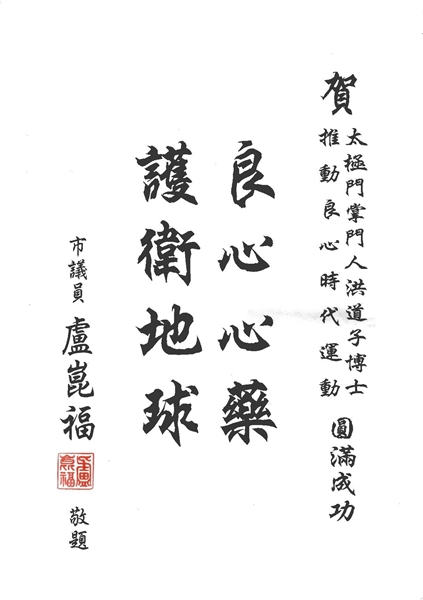 賀 太極門掌門人洪道子博士
推動良心時代運動 圓滿成功
良心心藥
護衛地球
市議員 盧崑福 敬題
盧崑福